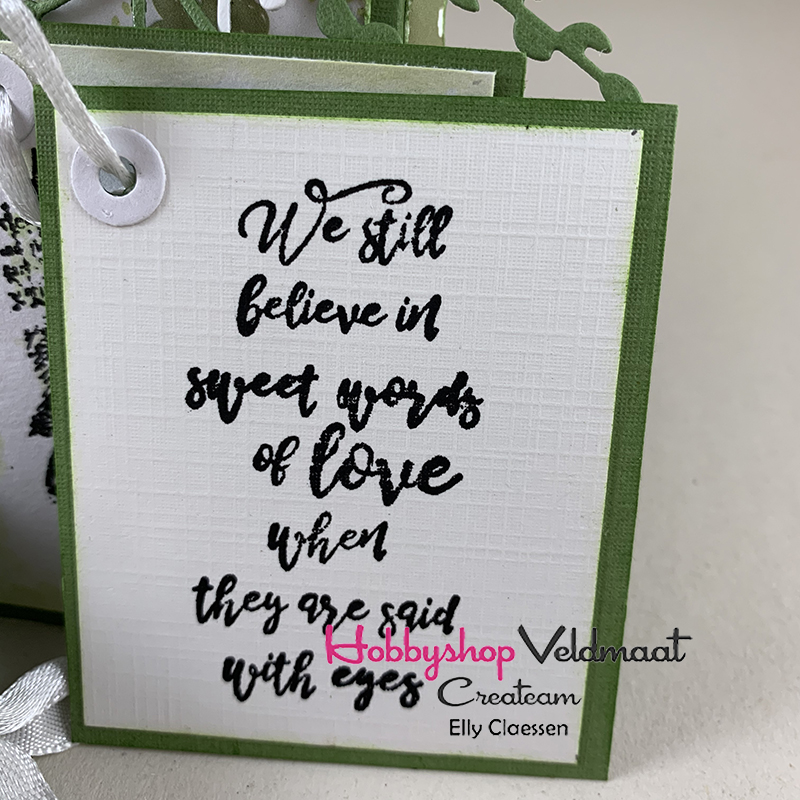 We still
believe in
sweet words
of love
when
they are said
with eyes
Hobbyshop Veldmaat
Createam
Elly Claessen